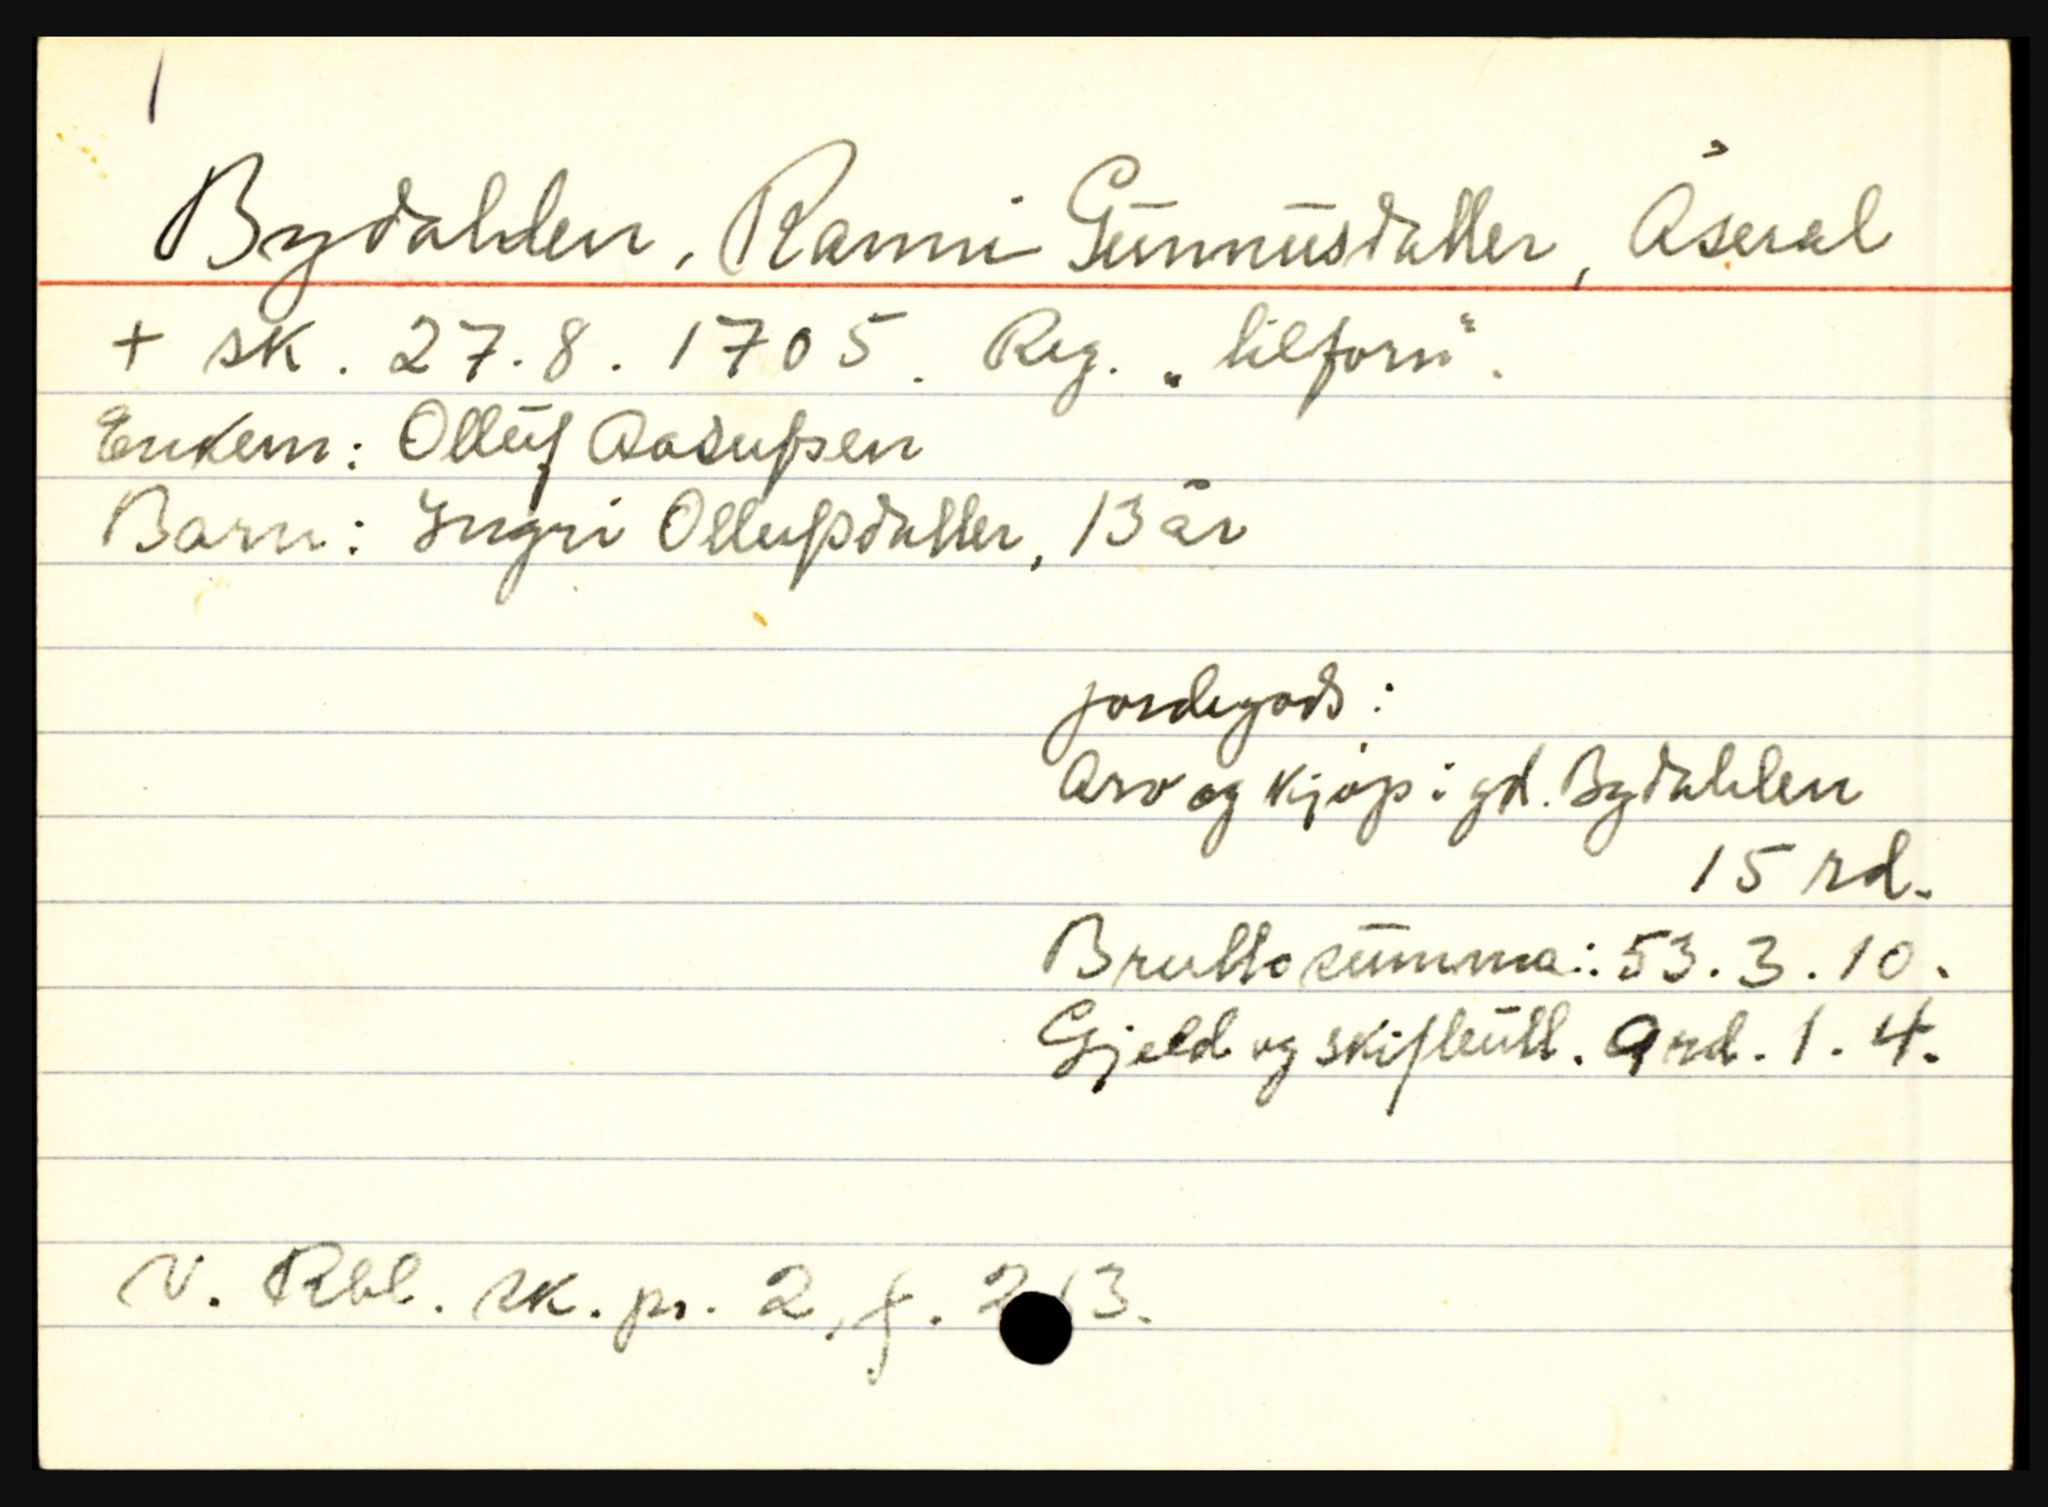 Bydahlen, Ranni Gunnusdatter, Åseral
+ sk. 27.8.1705. Reg. „tilforn“.
Enkem: Olluf Aasufsen
Barn: Yngri Ollufsdatter, 13 år
jordegods:
Arv og kjøp i gd. Bydahlen
15 rd.
Bruttosumma: 53.3.10.
Gjeld og skifteutl. 9 rd. 1.4.
V. Rbl. sk. pr. 2, f. 213.